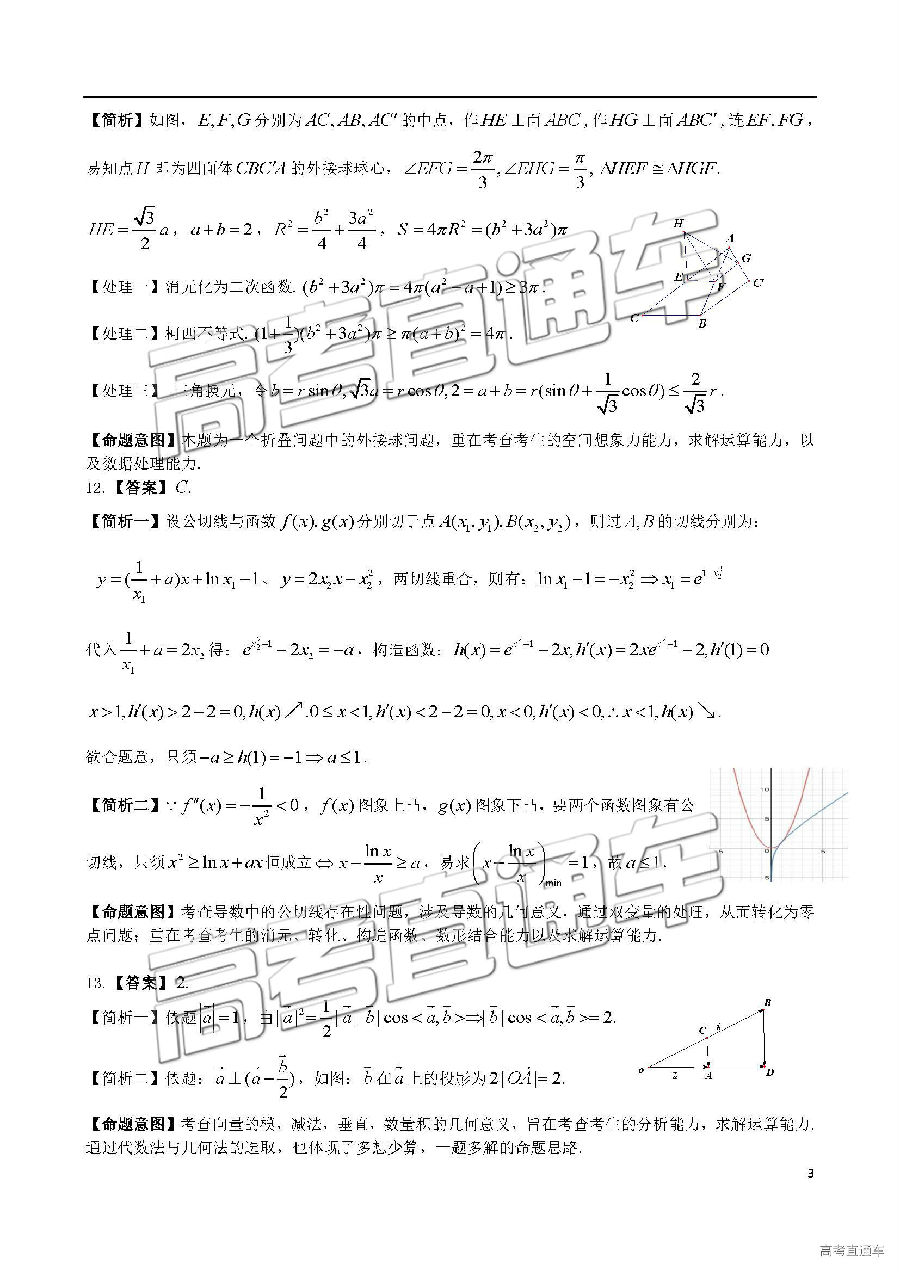 【简析】如图，E,F,G分别为AC,AB,AC′的中点，作HE⊥面ABC,作HG⊥面ABC′,连EF,FG，
易知点H即为四面体CBC′A的外接球球心，∠EFG=2π/3,∠EHG=π/3,△HEF≅△HGF.
HE=√3/2 a，a+b=2，R²=b²/4+3a²/4，S=4πR²=(b²+3a²)π
【处理一】消元化为二次函数.(b²+3a²)π=4π(a²-a+1)≥3π.
【处理二】柯西不等式.(1+1/3)(b²+3a²)π≥π(a+b)²=4π.
【处理三】三角换元，令b=r sinθ,√3a=r cosθ,2=a+b=r(sinθ+1/√3 cosθ)≤2/√3 r.
【命题意图】本题为一个折叠问题中的外接球问题，重在考查考生的空间想象力能力，求解运算能力，以
及数据处理能力.
H
A
G
E
F
C′
C
B
12.【答案】C.
【简析一】设公切线与函数f(x),g(x)分别切于点A(x₁,y₁),B(x₂,y₂)，则过A,B的切线分别为：
y=(1/x₁+a)x+ln x₁-1、y=2x₂x-x₂²，两切线重合，则有：ln x₁-1=-x₂²⇒x₁=e^(1-x₂²)
代入1/x₁+a=2x₂得：e^(x₂²-1)-2x₂=-a，构造函数：h(x)=e^(x²-1)-2x,h′(x)=2xe^(x²-1)-2,h′(1)=0
x>1,h′(x)>2-2=0,h(x)↗.0≤x<1,h′(x)<2-2=0,x<0,h′(x)<0,∴x<1,h(x)↘.
欲合题意，只须-a≥h(1)=-1⇒a≤1.
【简析二】∵f″(x)=-1/x²<0，f(x)图象上凸，g(x)图象下凸，要两个函数图象有公
切线，只须x²≥ln x+ax恒成立⇔x-ln x/x≥a，易求(x-ln x/x)min=1，故a≤1.
【命题意图】考查导数中的公切线存在性问题，涉及导数的几何意义．通过双变量的处理，从而转化为零
点问题；重在考查考生的消元、转化、构造函数、数形结合能力以及求解运算能力.
13.【答案】2.
【简析一】依题|a⃗|=1，由|a⃗|²=1/2|a⃗||b⃗|cos<a⃗,b⃗>⇒|b⃗|cos<a⃗,b⃗>=2.
【简析二】依题：a⃗⊥(a⃗-b⃗/2)，如图：b⃗在a⃗上的投影为2|OA⃗|=2.
B
C
b
O
A
D
【命题意图】考查向量的模，减法，垂直，数量积的几何意义，旨在考查考生的分析能力，求解运算能力.
通过代数法与几何法的选取，也体现了多想少算，一题多解的命题思路.
3
高考直通车
高考直通车
高考直通车